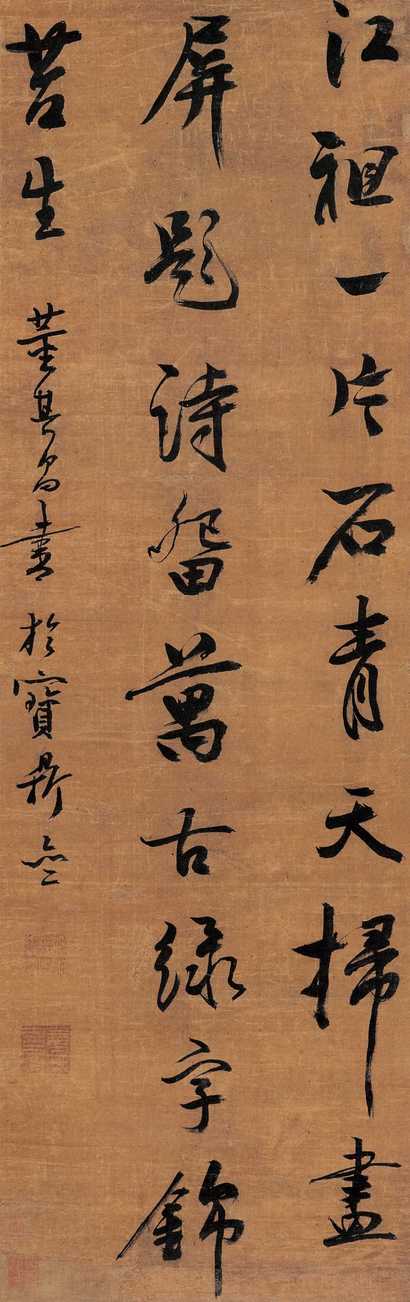 江祖一片石青天掃畫
屏題詩留萬古綠字錦
苔生 董其昌書於寶鼎齋